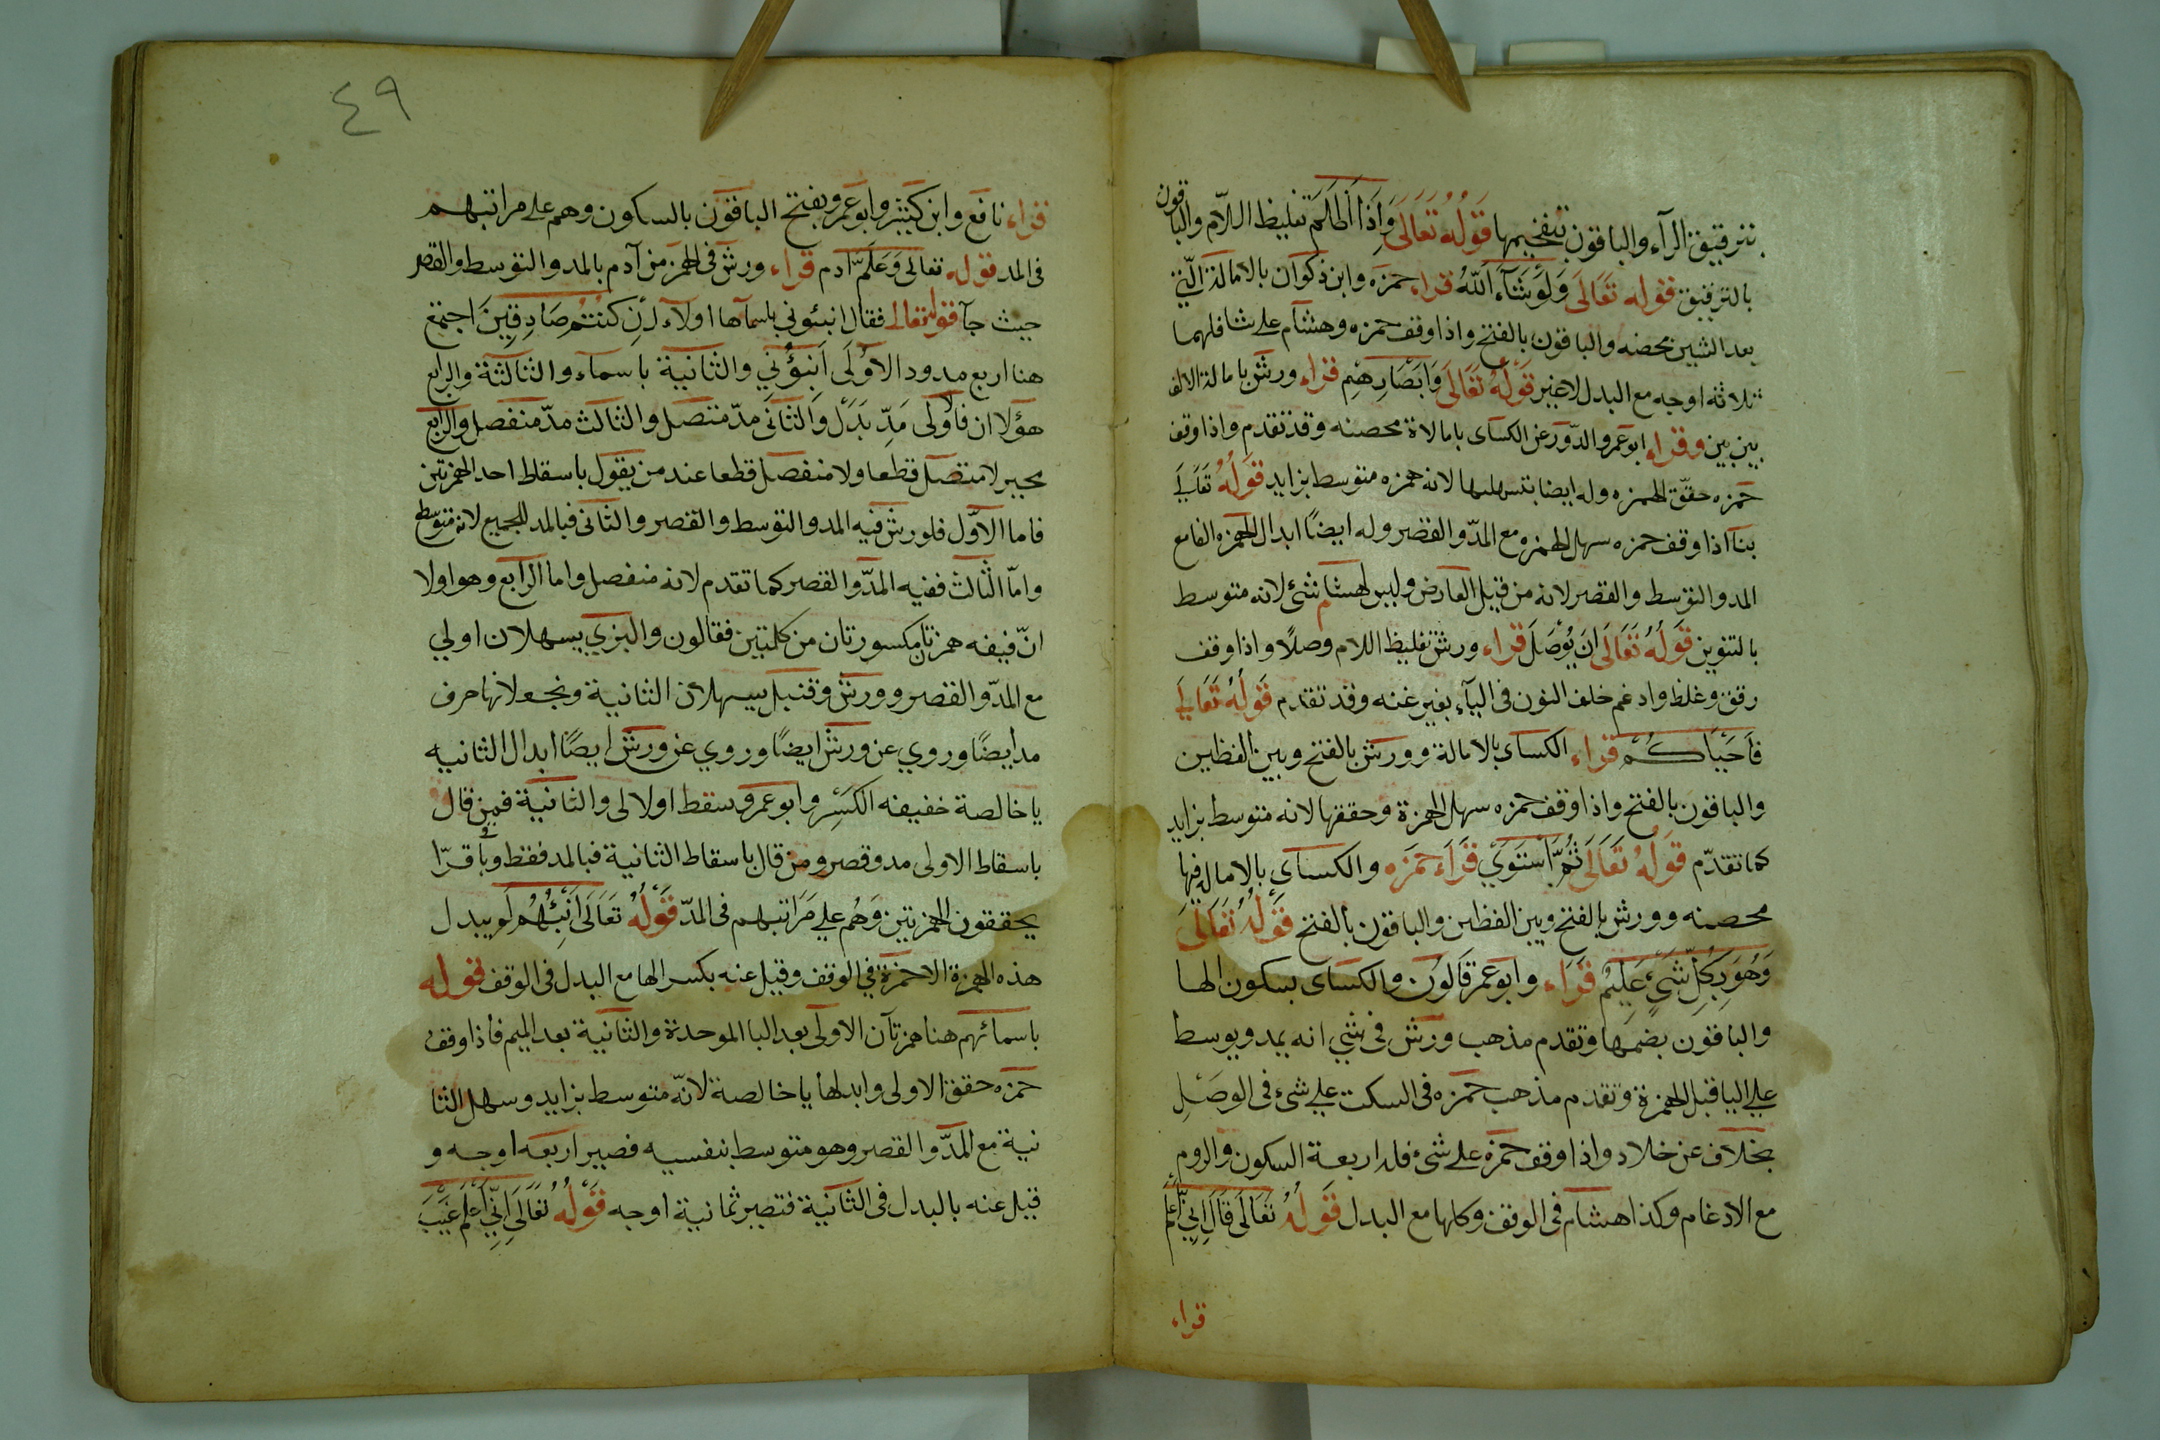 بترقيق الرآء والباقون بتفخيمها قوله تعالى واذا اظلم تغليظ اللآم والباقون
بالترقيق قوله تعالى ولو شآء الله قراء حمزه وابن ذكوان بالامالة التي
بعد الشين محضه والباقون بالفتح واذا وقف حمزه وهشام على شا فلهما
ثلاثة اوجه مع البدل لاغير قوله تعالى وابصارهم قراء ورش بامالة الالف
بين بين وقراء ابو عمرو الدوري عن الكساى بامالاة محصنه وقد تقدم واذا وقف
حمزه حقق الهمزه وله ايضا بتسهلها لانه همزه متوسط بزايد قوله تعالى
بنآ اذا وقف حمزه سهل الهمزه مع المدّ والقصر وله ايضاً ابدال الهمزه الفا مع
المد والتوسط والقصر لانه من قبيل العارض وليس لهشام شئ لانه متوسط
بالتنوين قوله تعالى ان يوصل قراء ورش تغليظ اللام وصلاً واذا وقف
رقق وغلظ وادغم خلف النون فى اليآء بغير غنه وقد تقدم قوله تعالى
فاحياكم قراء الكساى بالامالة وورش بالفتح وبين الفظين
والباقون بالفتح واذا وقف حمزه سهل الهمزة وحققها لانه متوسط بزايد
كما تقدّم قوله تعالى ثم استوي قراء حمزه والكساى بالاماله فيها
محصنه وورش بالفتح وبين الفظين والباقون بالفتح قوله تعالى
وهو بكل شيء عليم قراء وابو عمر قالون والكساى بسكون الها
والباقون بضمها وتقدم مذهب ورش فى شيء انه يمد ويوسط
على اليا قبل الهمزة وتقدم مذهب حمزه فى السكت على شئ فى الوصل
بخلاف عن خلاد واذا وقف حمزة على شئ فله اربعة السكون والروم
مع الادغام وكذا هشام فى الوقف وكلها مع البدل قوله تعالى قال انى اعلم
قراء
٤٩
قراء نافع وابن كثير وابو عمرو بفتح الباقون بالسكون وهم على مراتبهم
فى المد قوله تعالى وعلم آدم قراء ورش فى الهمز من آدم بالمد والتوسط والقصر
حيث جآ قوله تعالى فقال انبئوني باسمآها اولآء ان كنتم صادقين اجتمع
هنا اربع مدود الاولى انبؤني والثانية باسماء والثالثة والرابع
هؤلا ان فالاولى مدّ بدل والثانى مدّ متصل والثالث مدّ منفصل والرابع
مجير لا متصل قطعا ولا منفصل قطعا عند من يقول باسقاط احد الهمزتين
فاما الاوّل فلورش فيه المد والتوسط والقصر والثانى فبالمد للجميع لانه متوسط
وامّا الثالث ففيه المدّ والقصر كما تقدم لانه منفصل واما الرابع وهو اولا
انّ فيفه همزتان مكسورتان من كلمتين فقالون والبزي يسهلان اولي
مع المدّ والقصر وورش وقنبل يسهلان الثانية ونجعلانها حرف
مد ايضًا وروي عن ورش ايضًا وروي عن ورش ايضًا ابدال الثانيه
يا خالصة خفيفه الكسر وابو عمرو سقط اولالى والثانية فمن قال
باسقاط الاولى مد وقصر ومن قال باسقاط الثانية فبالمد فقط وباقرّا
يحققون الهمزتين وهم على مراتبهم فى المدّ قوله تعالى انبئهم لو يبدل
هذه الهمزة الا حمزة في الوقف وقيل عنه بكسر الها مع البدل فى الوقف قوله
باسمائهم هنا همزتآن الاولى بعد البا الموحدة والثانية بعد الميم فاذا وقف
حمزه حقق الاولى وابدلها ياخالصة لانّه متوسط بزايد وسهل الثا
نية مع المدّ والقصر وهو متوسط بنفسيه فصير اربعه اوجه و
قيل عنه بالبدل فى الثانية فتصير ثمانية اوجه قوله تعالى اني اعلم غيب